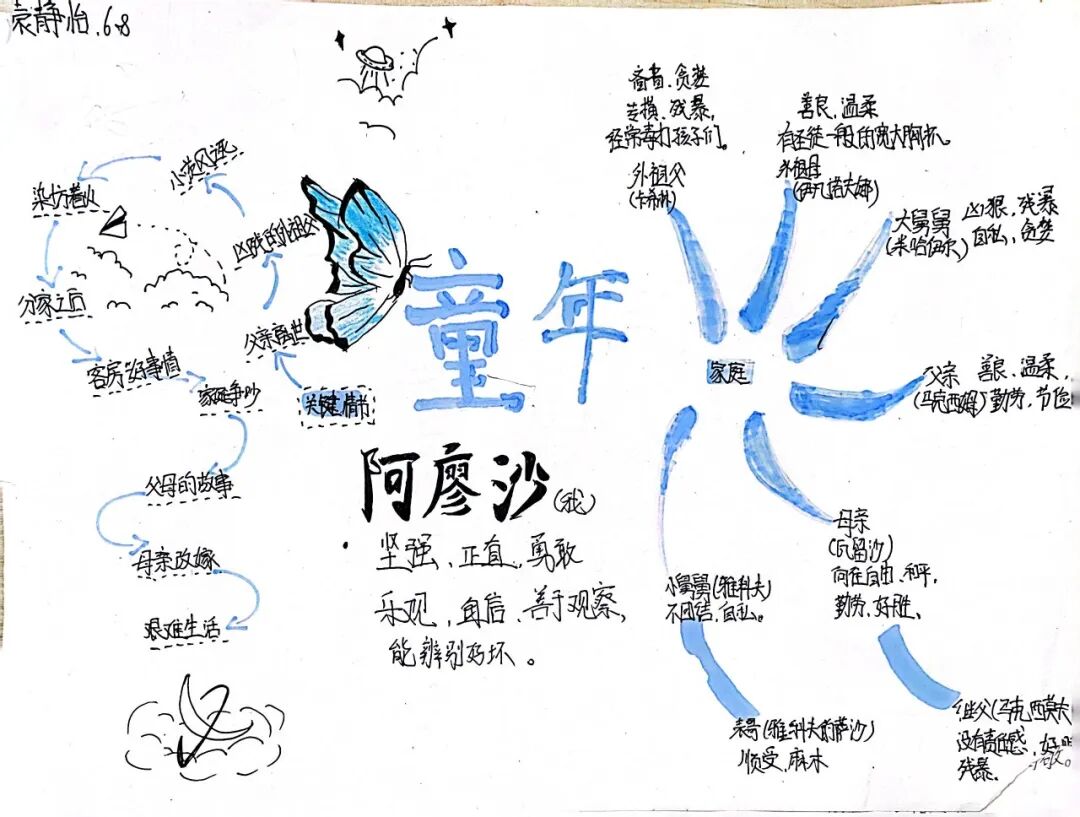 袁静怡.6.8
童年
阿廖沙(我)
坚强、正直、勇敢
乐观、自信、善于观察,
能辨别好坏。
关键情节
父亲离世
凶残的外祖父
小茨风波
染坊着火
分家之后
客房好事情
家庭争吵
父母的故事
母亲改嫁
艰难生活
家庭
吝啬、贪婪
专横、残暴,
经常毒打孩子们。
外祖父
(卡希林)
善良、温柔
有圣徒一般的宽大胸怀。
外祖母
(伊凡诺夫娜)
大舅舅
(米哈伊尔)
凶狠,残暴
自私,贪婪
父亲 善良、温柔,
(马克西姆) 勤劳、节俭
母亲
(瓦留沙)
向往自由、和平,
勤劳、好胜、
继父(马克西莫夫
没有责任感、好
残暴。
小舅舅(雅科夫)
不团结,自私。
表哥(雅科夫的萨沙)
顺受、麻木